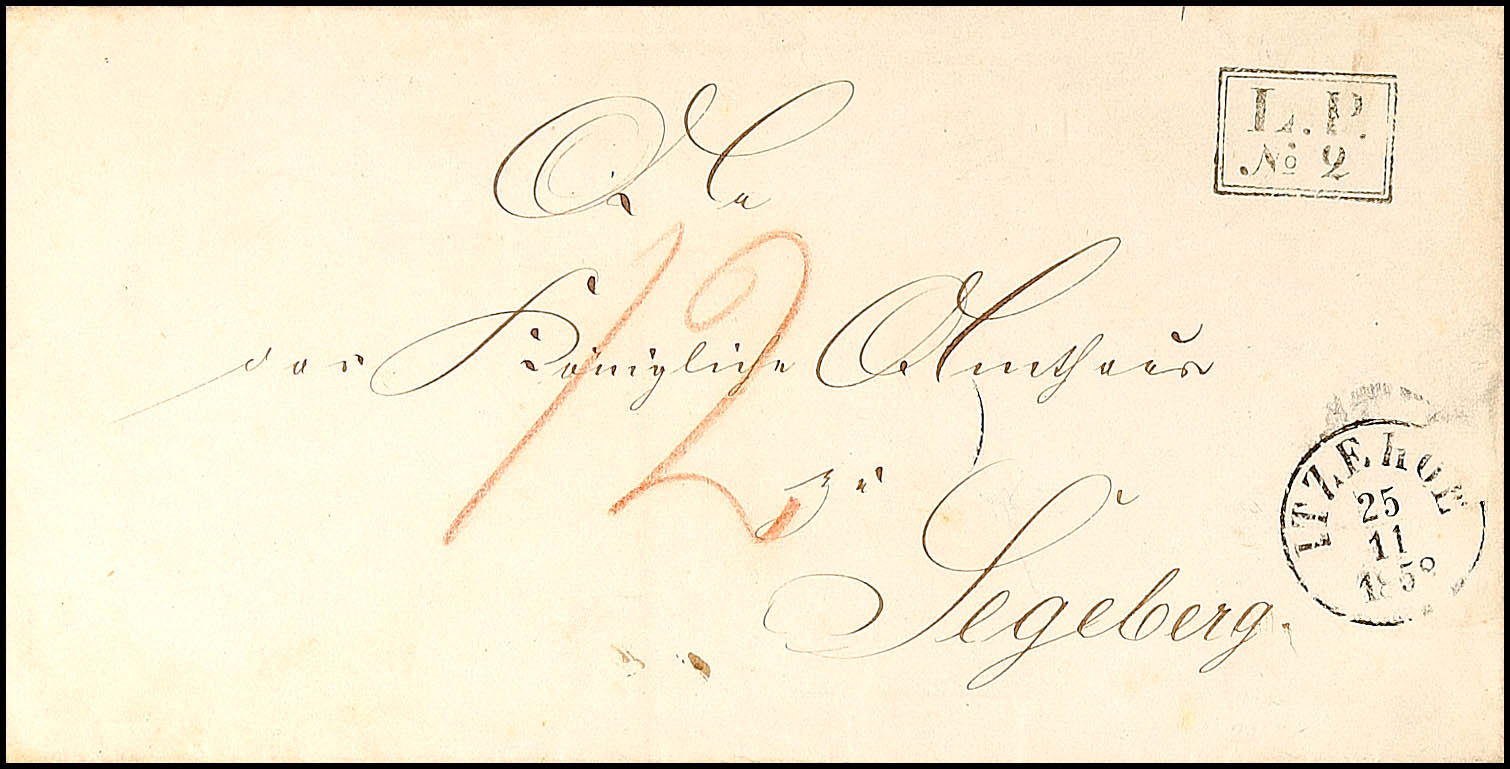 L. P.
No 2
An
das Königliche Amthaus
12
zu
Segeberg.
ITZEHOE
25
11